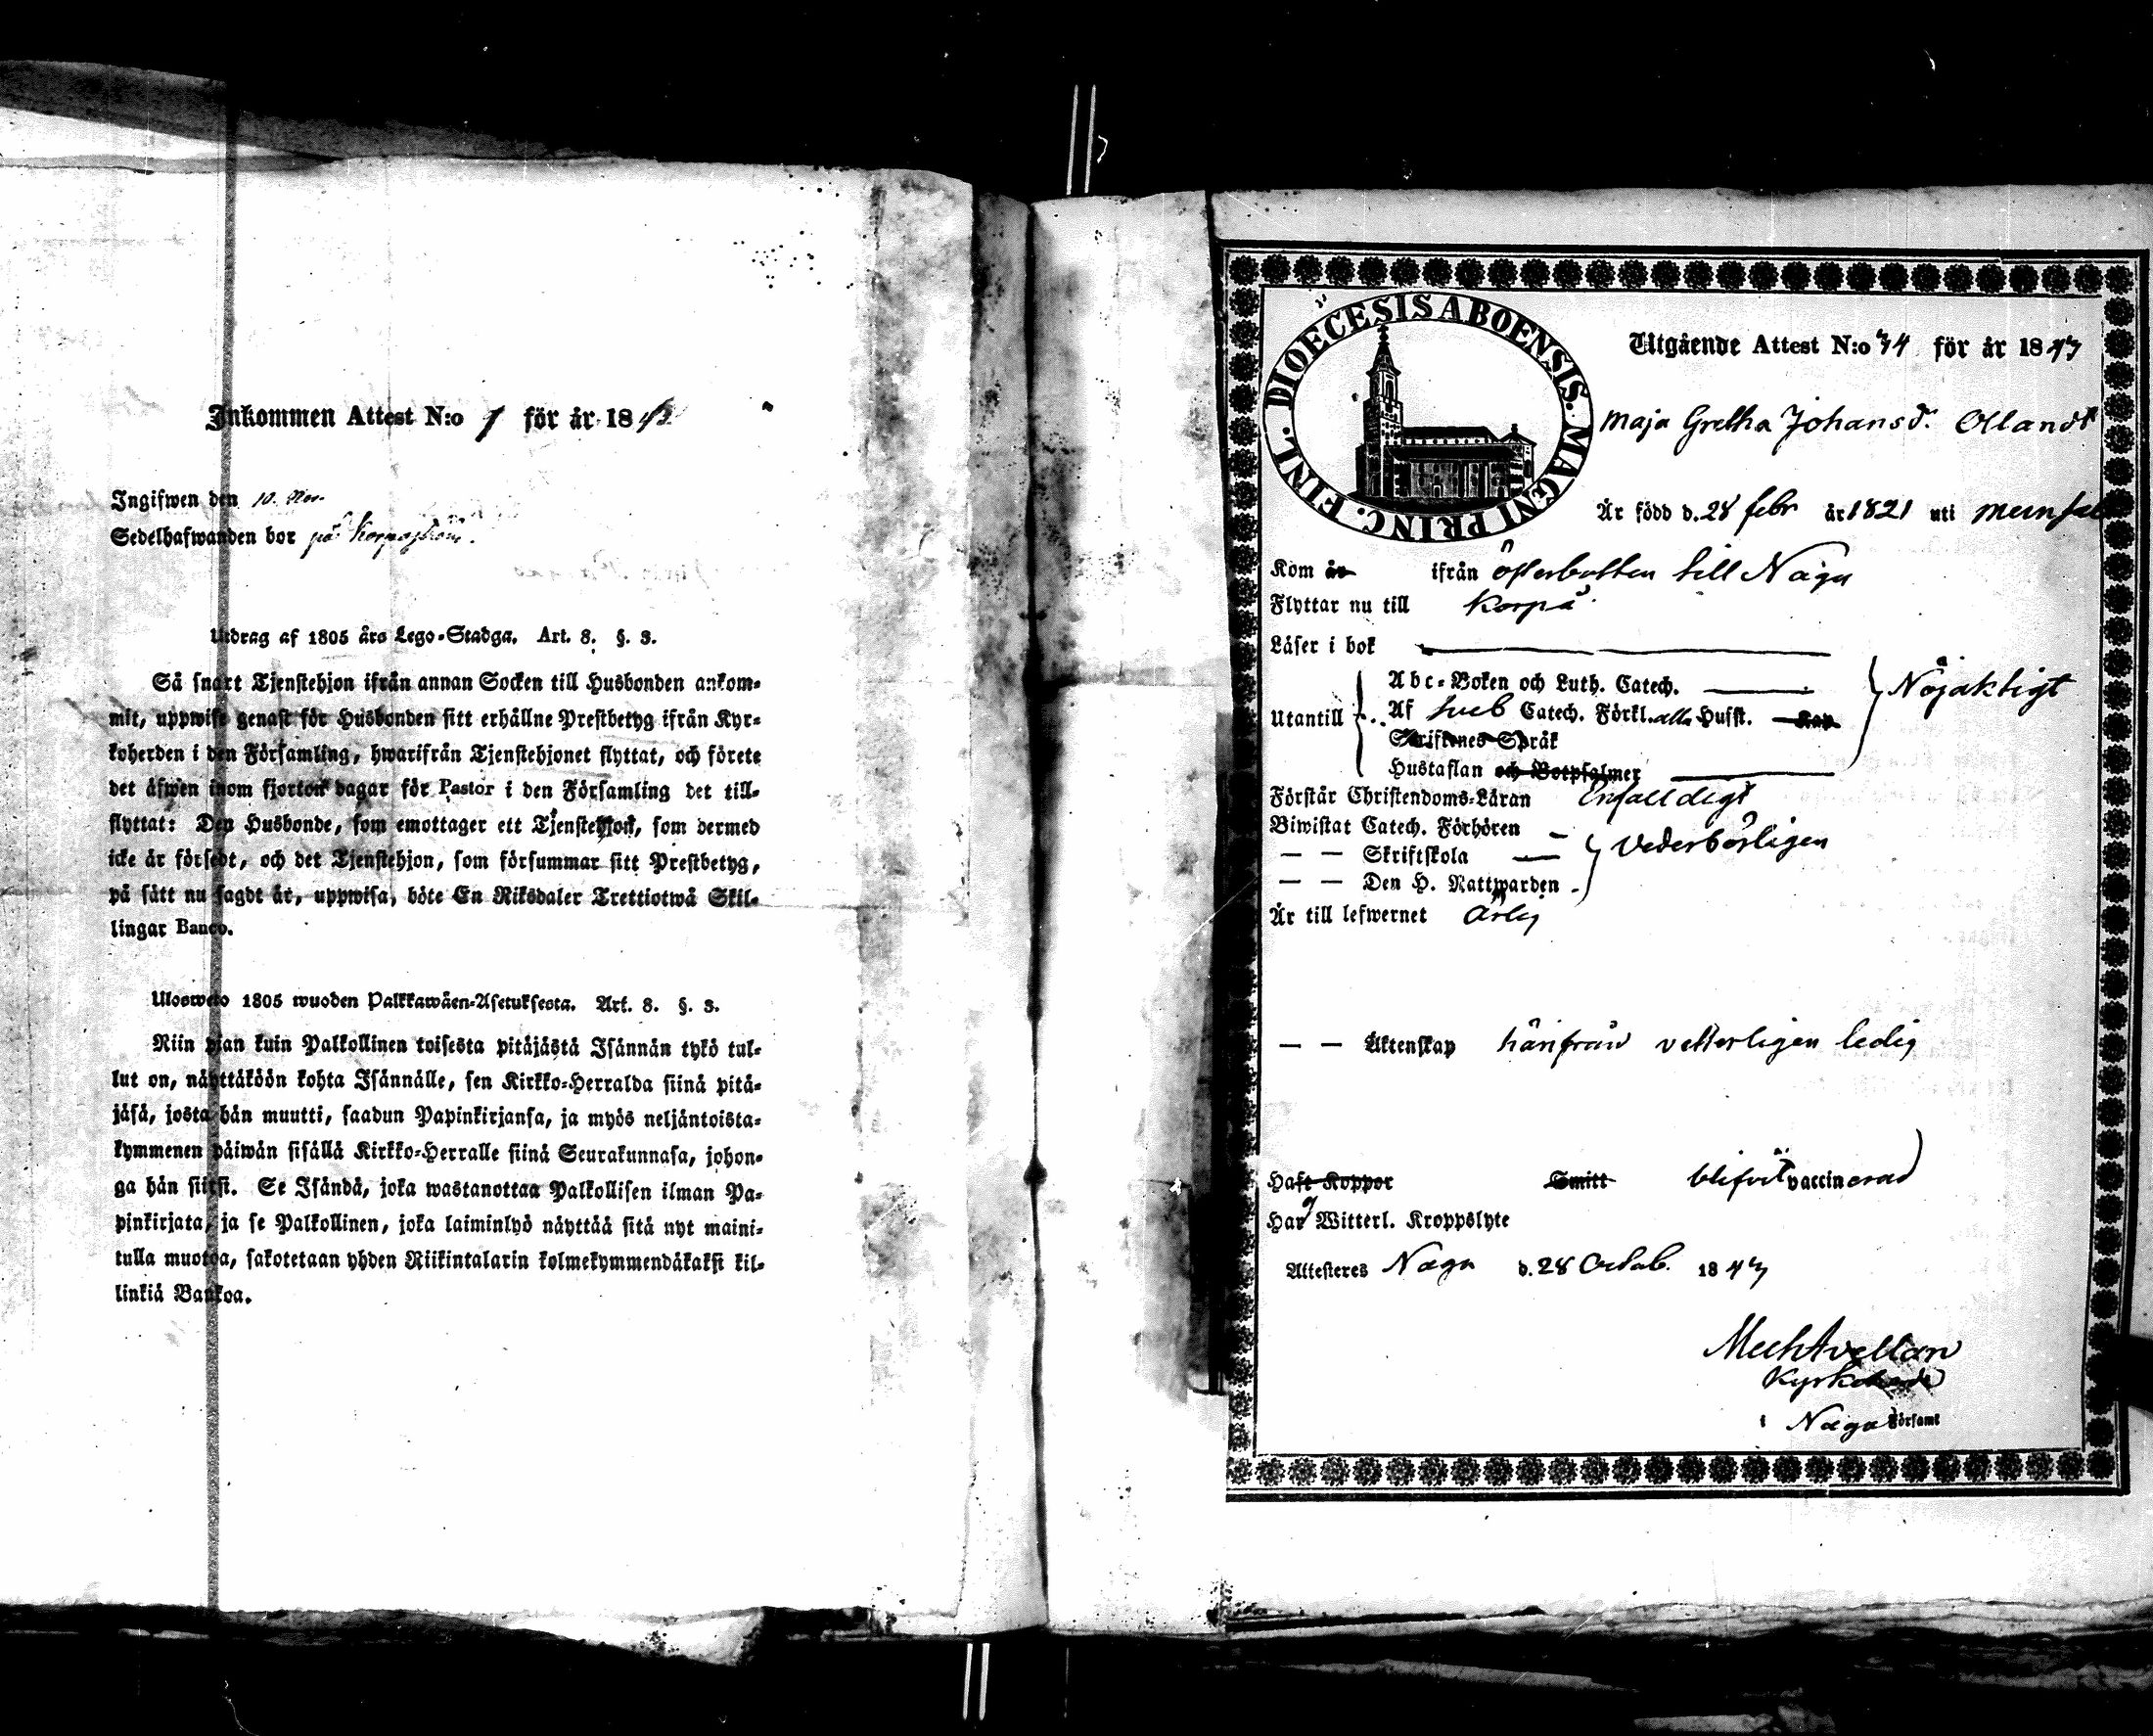 Inkommen Attest N:o 1 för år 1843
Ingifwen den 10. Nov.
Sedelhafwanden bor på Korpoström.
Utdrag af 1805 års Lego-Stadga. Art. 8. §. 3.
Så snart Tjenstehjon ifrån annan Socken till Husbonden ankom-
mit, uppwise genast för Husbonden sitt erhållne Prestbetyg ifrån Kyr-
koherden i den Församling, hwarifrån Tjenstehjonet flyttat, och förete
det äfwen inom fjorton dagar för Pastor i den Församling det till-
flyttat: Den Husbonde, som emottager ett Tjenstehjon, som dermed
icke är försedt, och det Tjenstehjon, som försummar sitt Prestbetyg,
på sätt nu sagdt är, uppwisa, böte En Riksdaler Trettiotwå Skil-
lingar Banco.
Ulosweto 1805 wuoden Palkkawäen-Asetuksesta. Art. 8. §. 3.
Niin pian kuin Palkollinen toisesta pitäjästä Isännän tykö tul-
lut on, näyttäköön kohta Isännälle, sen Kirkko-Herralda siinä pitä-
jäsä, josta hän muutti, saadun Papinkirjansa, ja myös neljäntoista-
kymmenen päiwän sisällä Kirkko-Herralle siinä Seurakunnasa, johon-
ga hän siirsi. Se Isändä, joka wastanottaa Palkollisen ilman Pa-
pinkirjata, ja se Palkollinen, joka laiminlyö näyttää sitä nyt maini-
tulla muotoa, sakotetaan yhden Riikintalarin kolmekymmendäkaksi kil-
linkiä Bankoa.
DIOECESIS ABOENSIS. MAGNI PRINC. FINL.
Utgående Attest N:o 34 för år 1843
Maja Gretha Johansd. Ollandt
Är född d. 28 febr år 1821 uti
Kom år ifrån Österbotten till Nagu
Flyttar nu till Korpo
Läser i bok
Abc-Boken och Luth. Catech.
Utantill Af Sveb Catech. Förkl. alla Husst. Kap Nöjaktigt
Skriftenes Språk
Hustaflan och Botpsalmer
Förstår Christendoms-Läran Enfalldigt
Biwistat Catech. Förhören
— — Skriftskola Vederbörligen
— — Den H. Nattwarden
Är till lefwernet ärlig
— — Äktenskap härifrån vetterligen ledig
Haft Koppor Smitt blifvit vaccinerad
Har ej Witterl. Kroppslyte
Attesteres Nagu d. 28 Octob. 1843
Mich Avellan
Kyrkoherde
i Nagu Församl